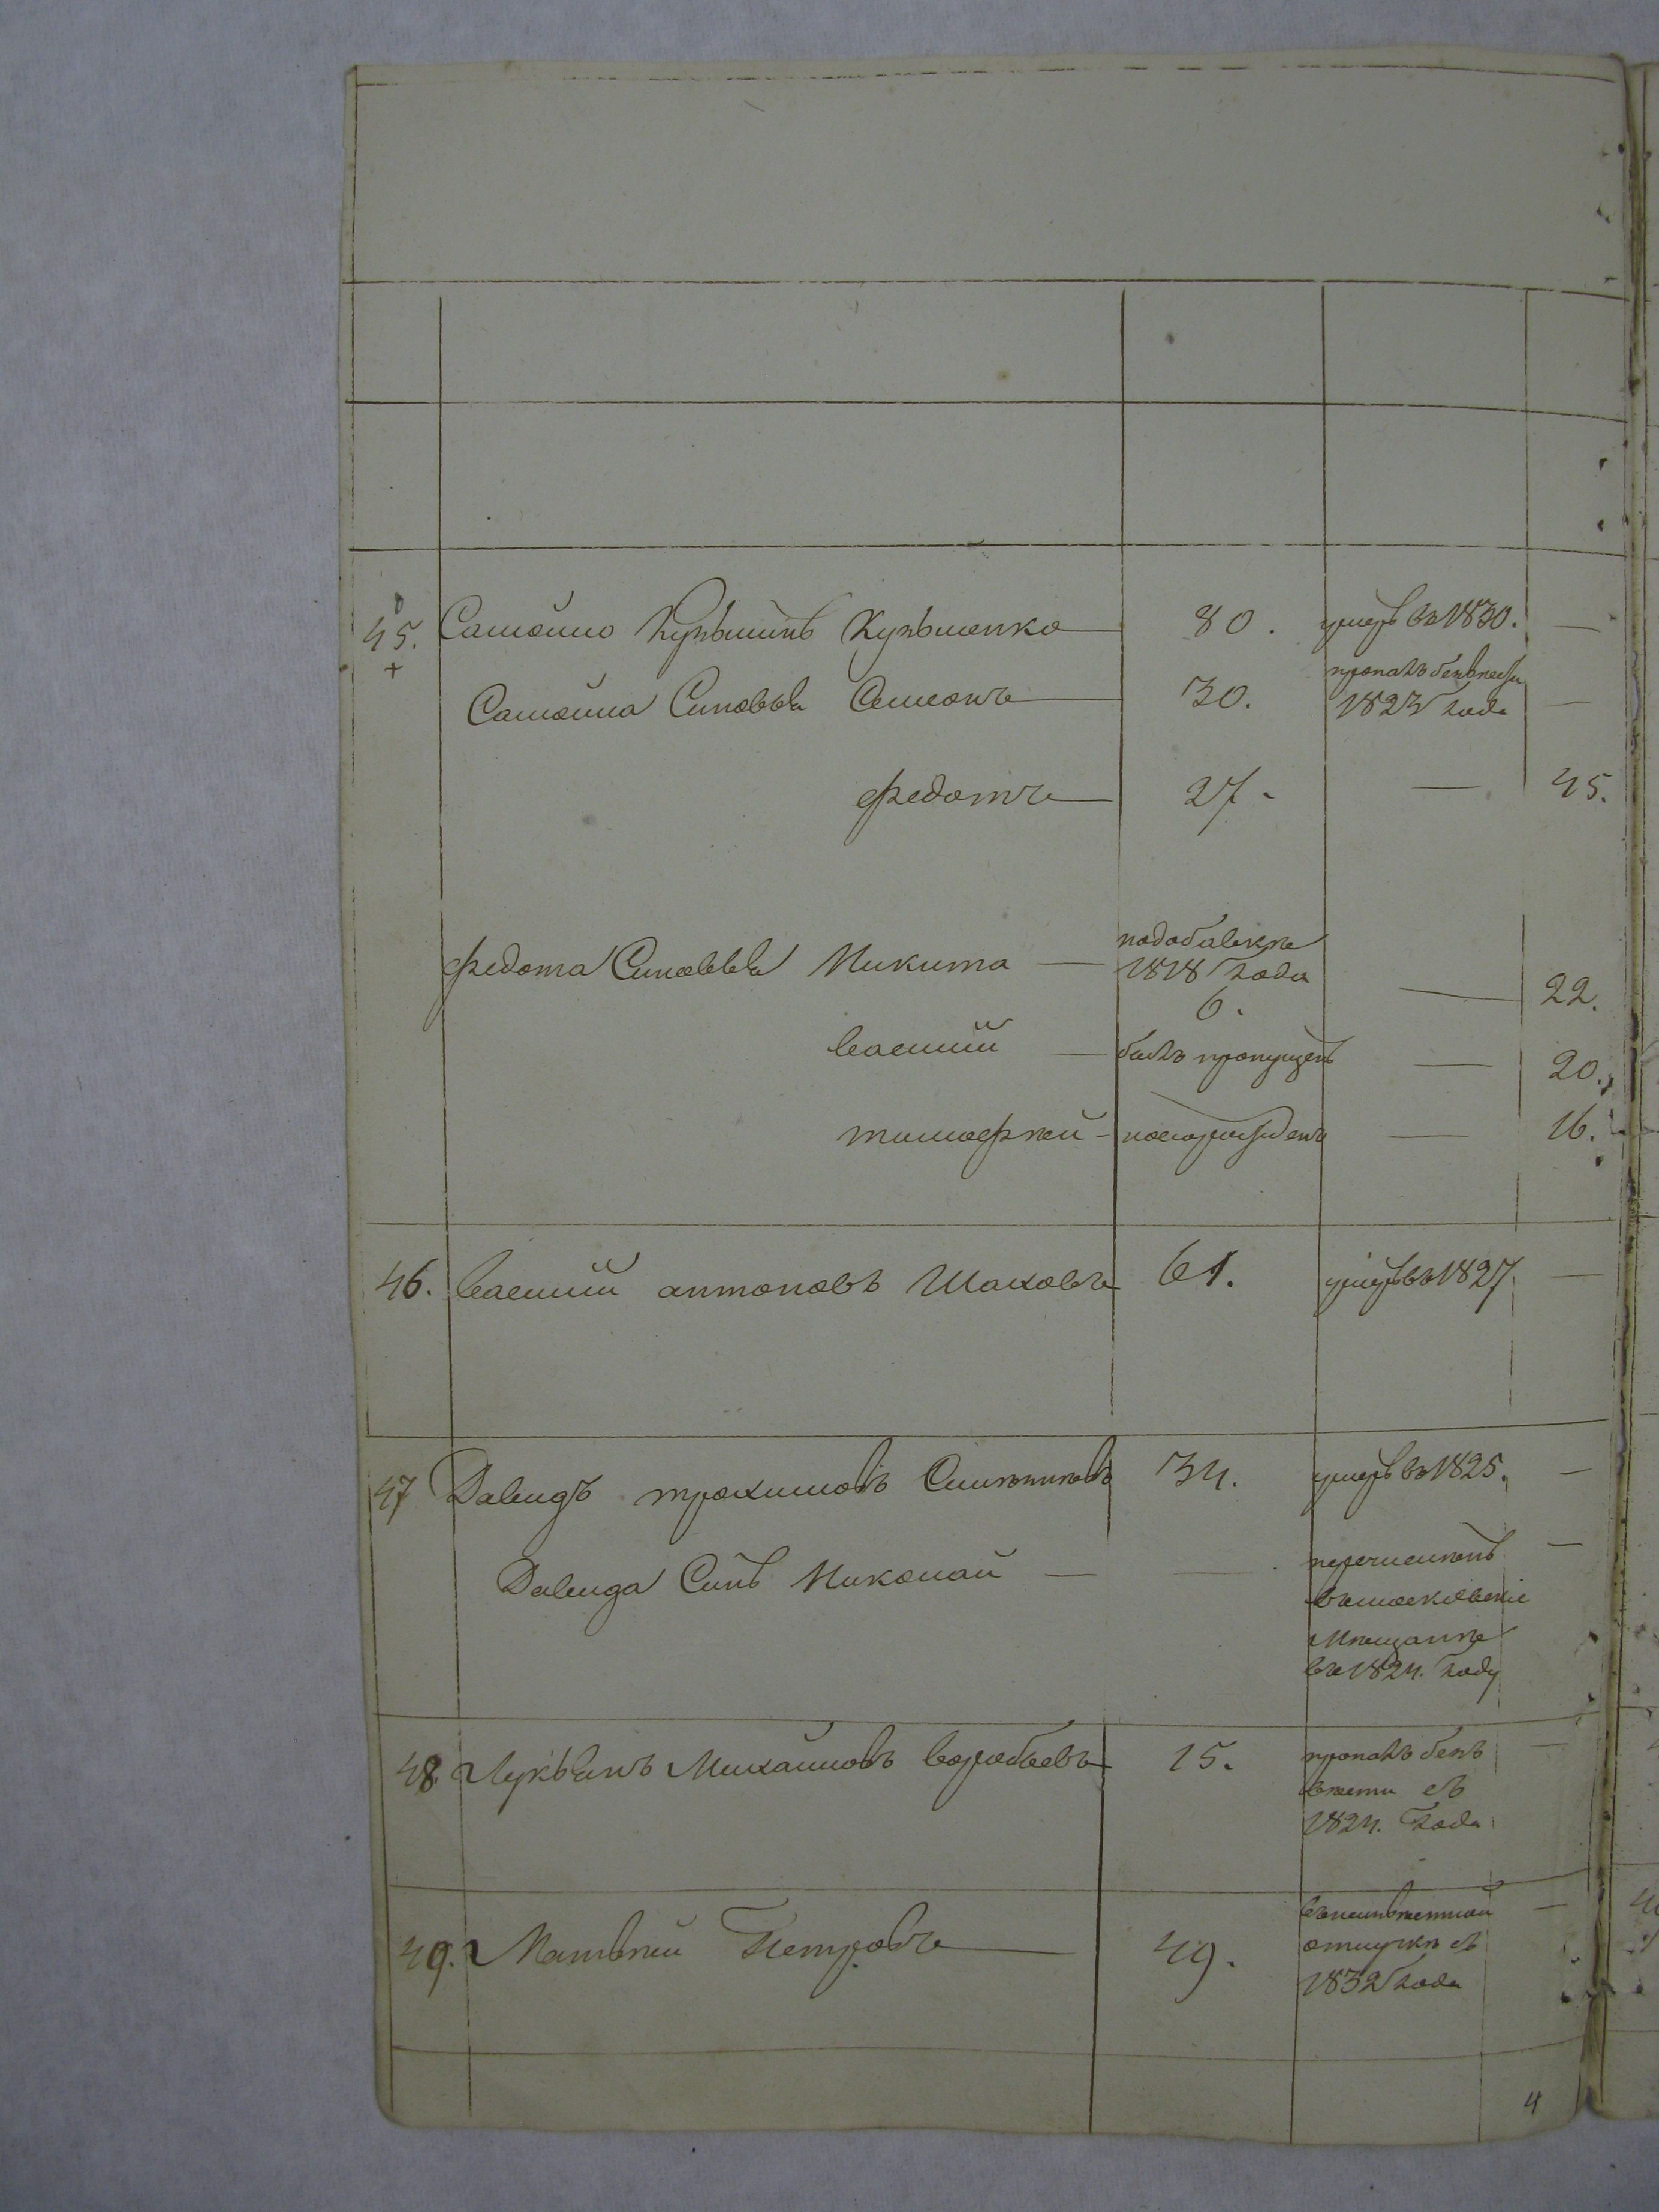 45. Самойло Кузьминъ Кузьменко — 80. умеръ въ 1830. —
+
Самойла Сыновья Семенъ — 30. пропалъ безвести 1823 года —
Федотъ — 27. — 45.
Федота Сыновья Никита — 
подобавкѣ
1818 года
6. — 22.
Василий — былъ пропущенъ — 20.
тимофѣй — послѣ рожденъ — 16.
46. Василий антоновъ Шаховъ 61. умеръ въ 1827 —
47 Давидъ трохимовъ 34. умеръ въ 1825. —
Давида Сынъ Николай — — перечисленъ —
въ московские
Мѣщанѣ
въ 1824. году
48. Лукьянъ Михайловъ воробьевъ 15. пропалъ безъ —
вѣсти съ
1824. Года
49. Матвѣй Петровъ — 49. —
отлучкѣ съ
1832 года
4